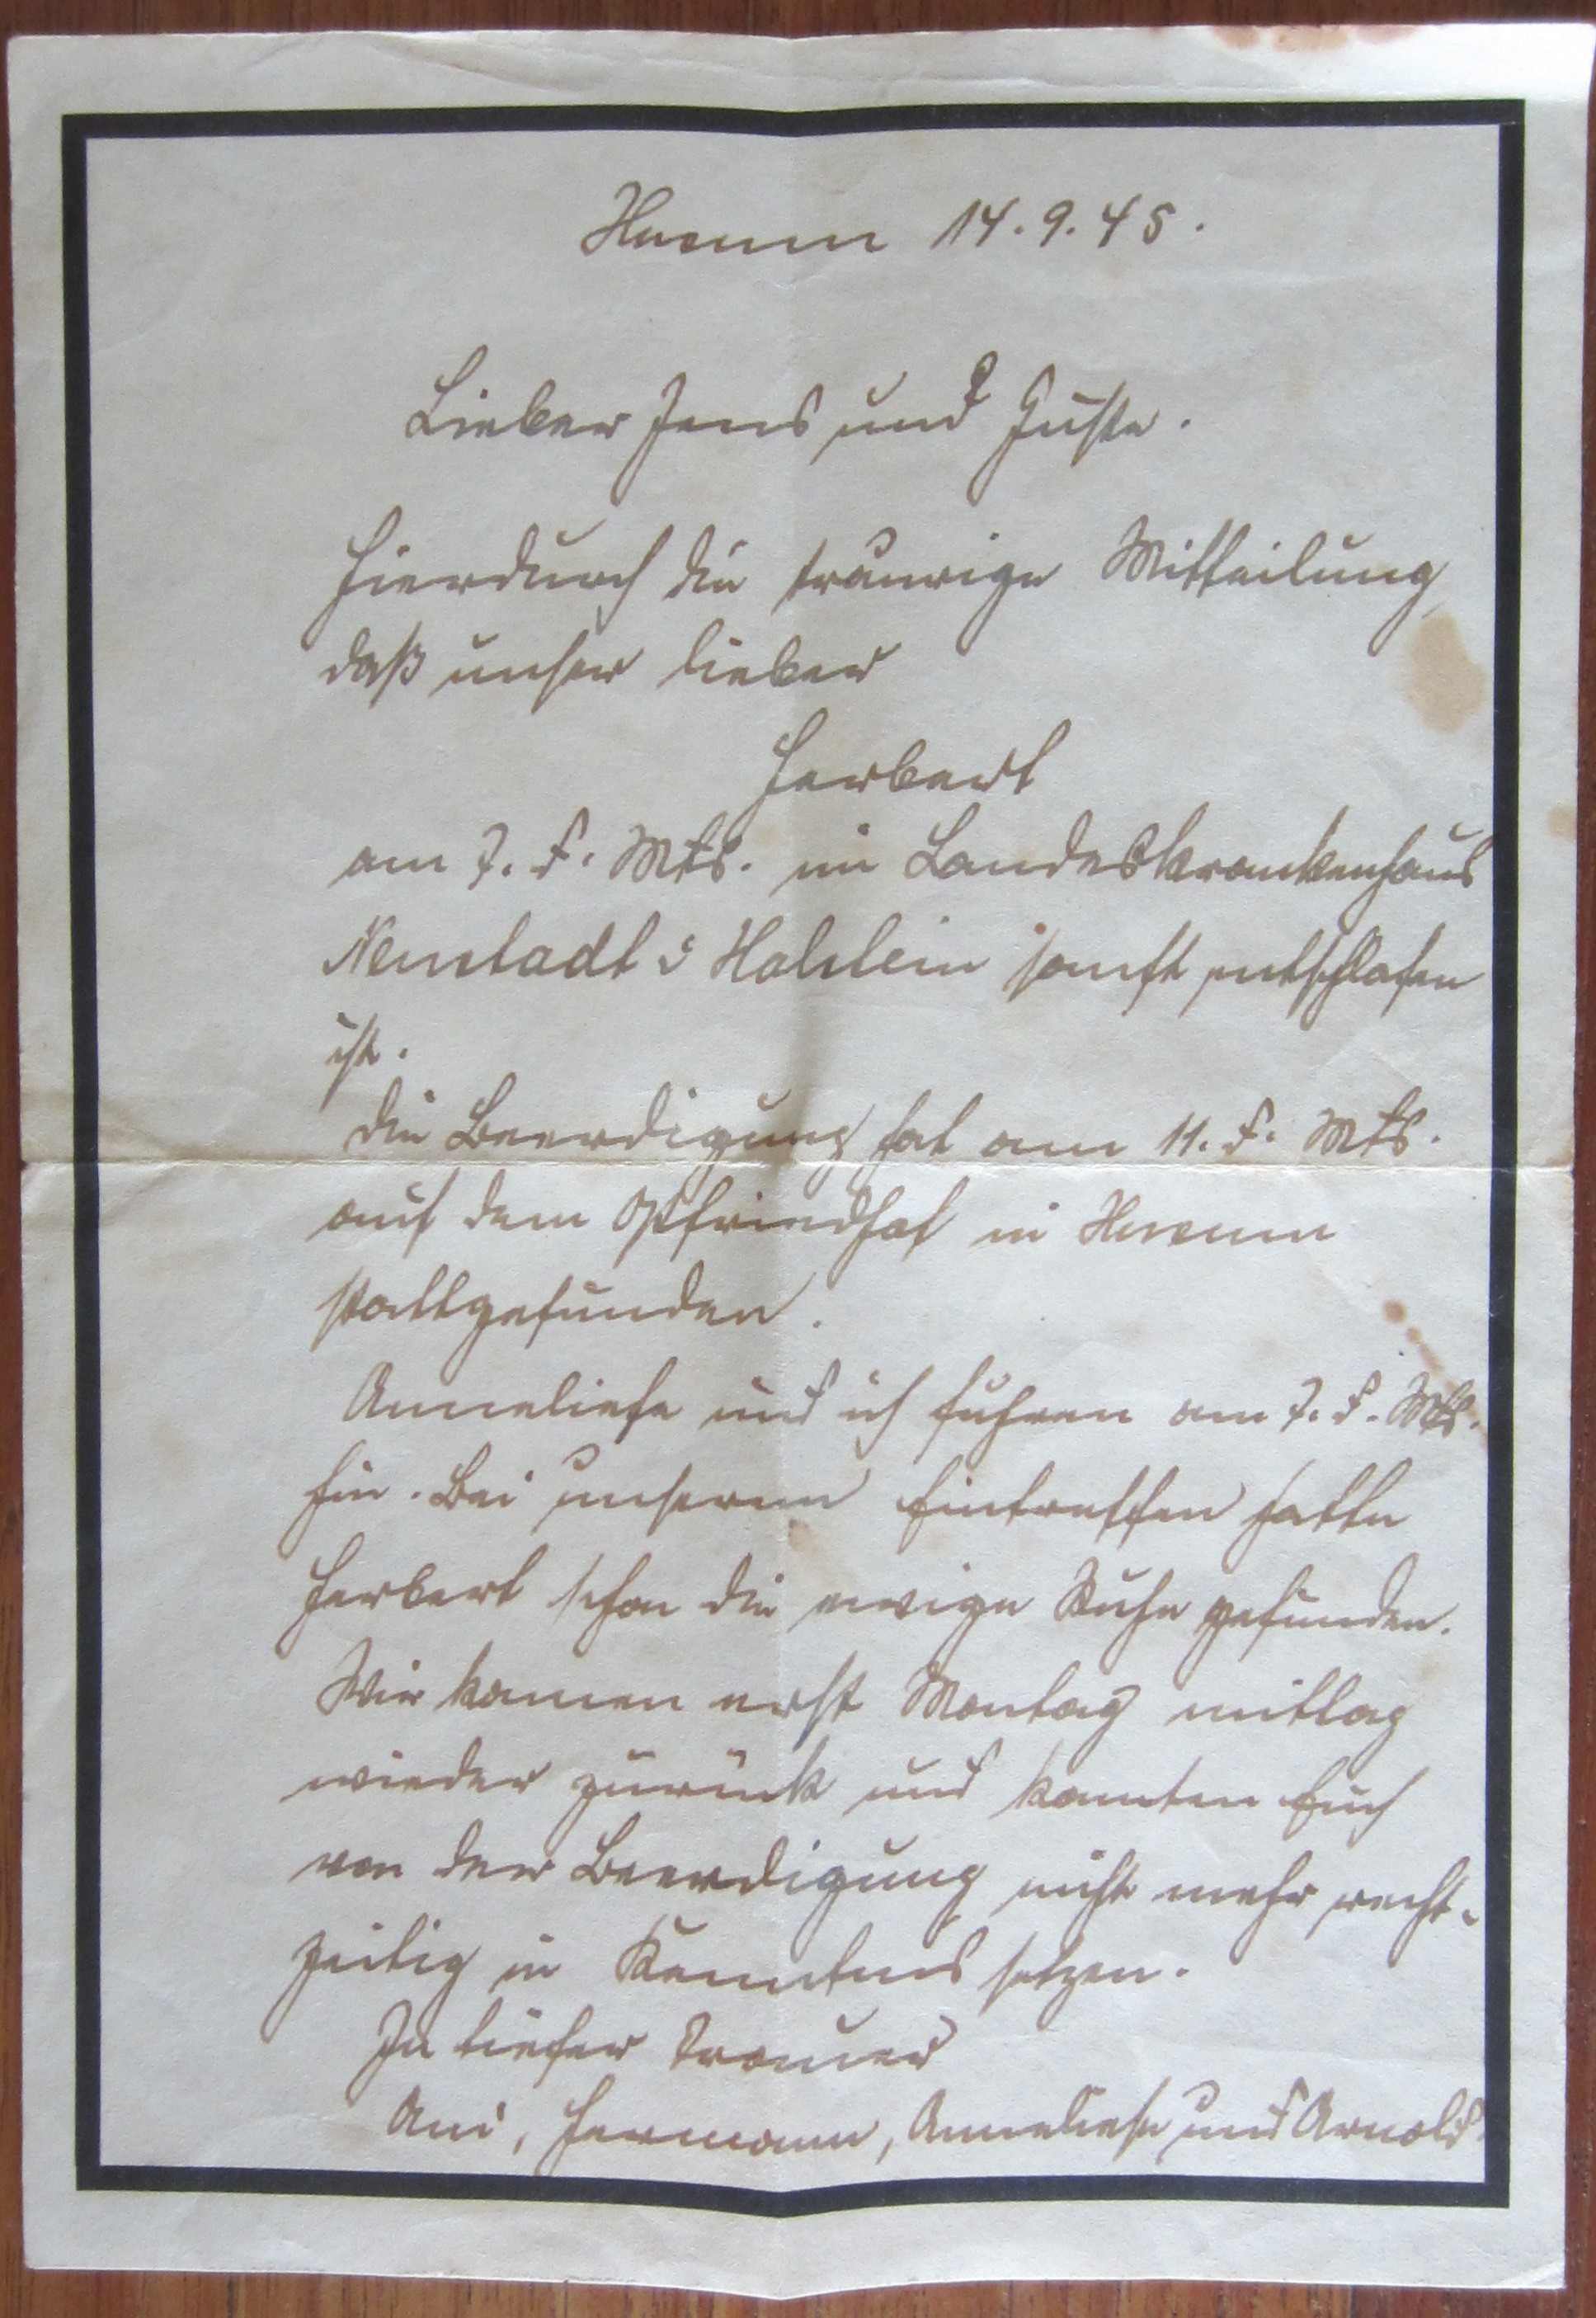 Husum 14.9.45.
Lieber Jens und Guste.
Hierdurch die traurige Mitteilung,
daß unser lieber
Herbert
am 7. d. Mts. im Landeskrankenhaus
Neustadt i Holstein sanft entschlafen
ist.
Die Beerdigung hat am 11. d. Mts.
auf dem Ostfriedhof in Husum
stattgefunden.
Anneliese und ich fuhren am 7. d. Mts.
hin. Bei unserem Eintreffen hatte
Herbert schon die ewige Ruhe gefunden.
Wir kamen erst Montag mittag
wieder zurück und konnten Euch
von der Beerdigung nicht mehr recht-
zeitig in Kenntnis setzen.
In tiefer Trauer
Ani, Hermann, Anneliese und Arnold.